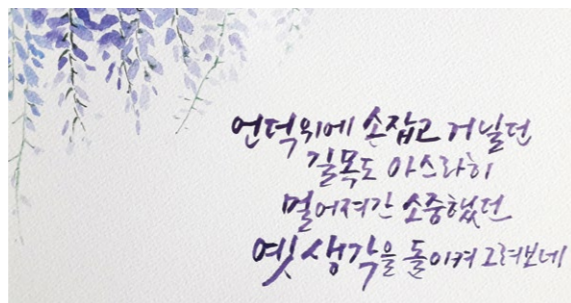 언덕위에 손잡고 거닐던
길목도 아스라히
멀어져간 소중했던
옛 생각을 돌이켜 그려보네